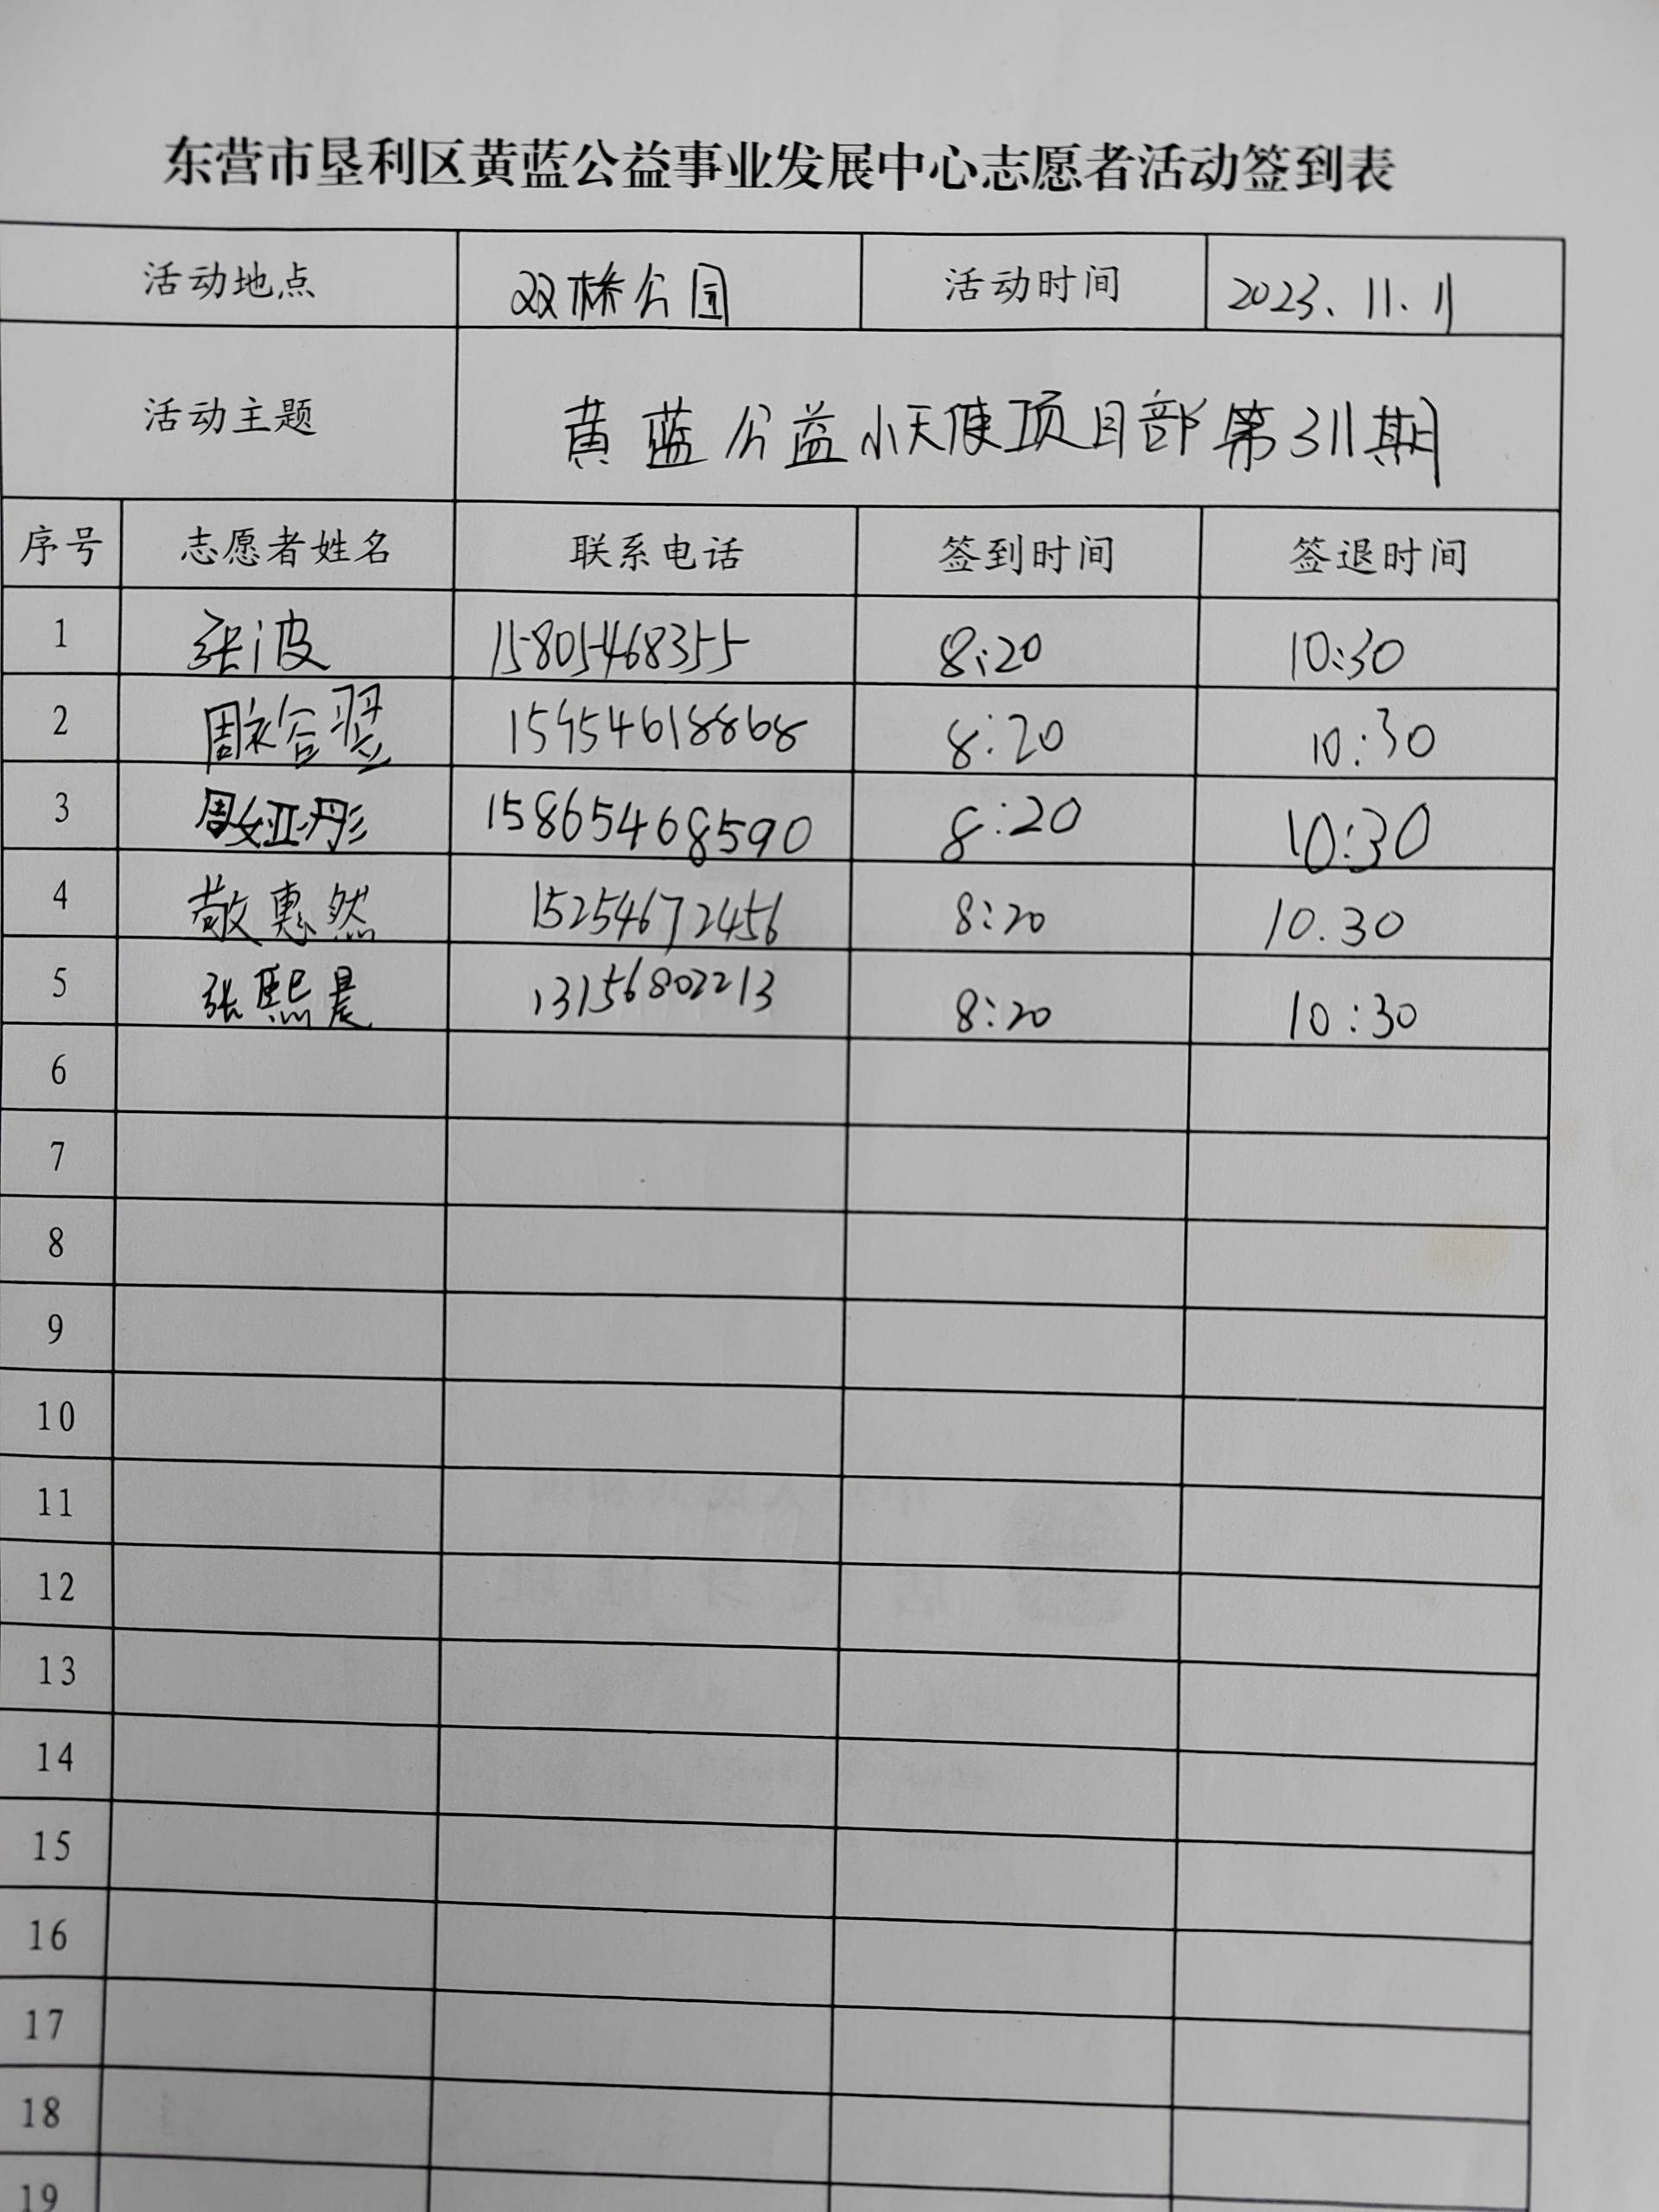 东营市垦利区黄蓝公益事业发展中心志愿者活动签到表
活动地点 双桥公园 活动时间 2023、11、11
活动主题 黄蓝公益小天使项目部第311期
序号 志愿者姓名 联系电话 签到时间 签退时间
1 张波 15805468355 8:20 10:30
2 周裕翌 15954618868 8:20 10:30
3 周娅彤 15865468590 8:20 10:30
4 敬惠然 15254672456 8:20 10.30
5 张熙晨 13156802213 8:20 10:30
6
7
8
9
10
11
12
13
14
15
16
17
18
19